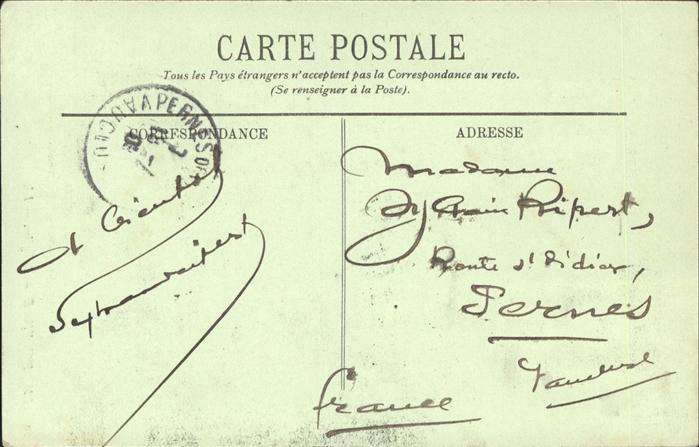 CARTE POSTALE
Tous les Pays étrangers n'acceptent pas la Correspondance au recto.
(Se renseigner à la Poste).
CORRESPONDANCE
ADRESSE
PERNES
Madame
Sylvain Ripert,
Route St Didier,
Pernes
Vaucluse
France